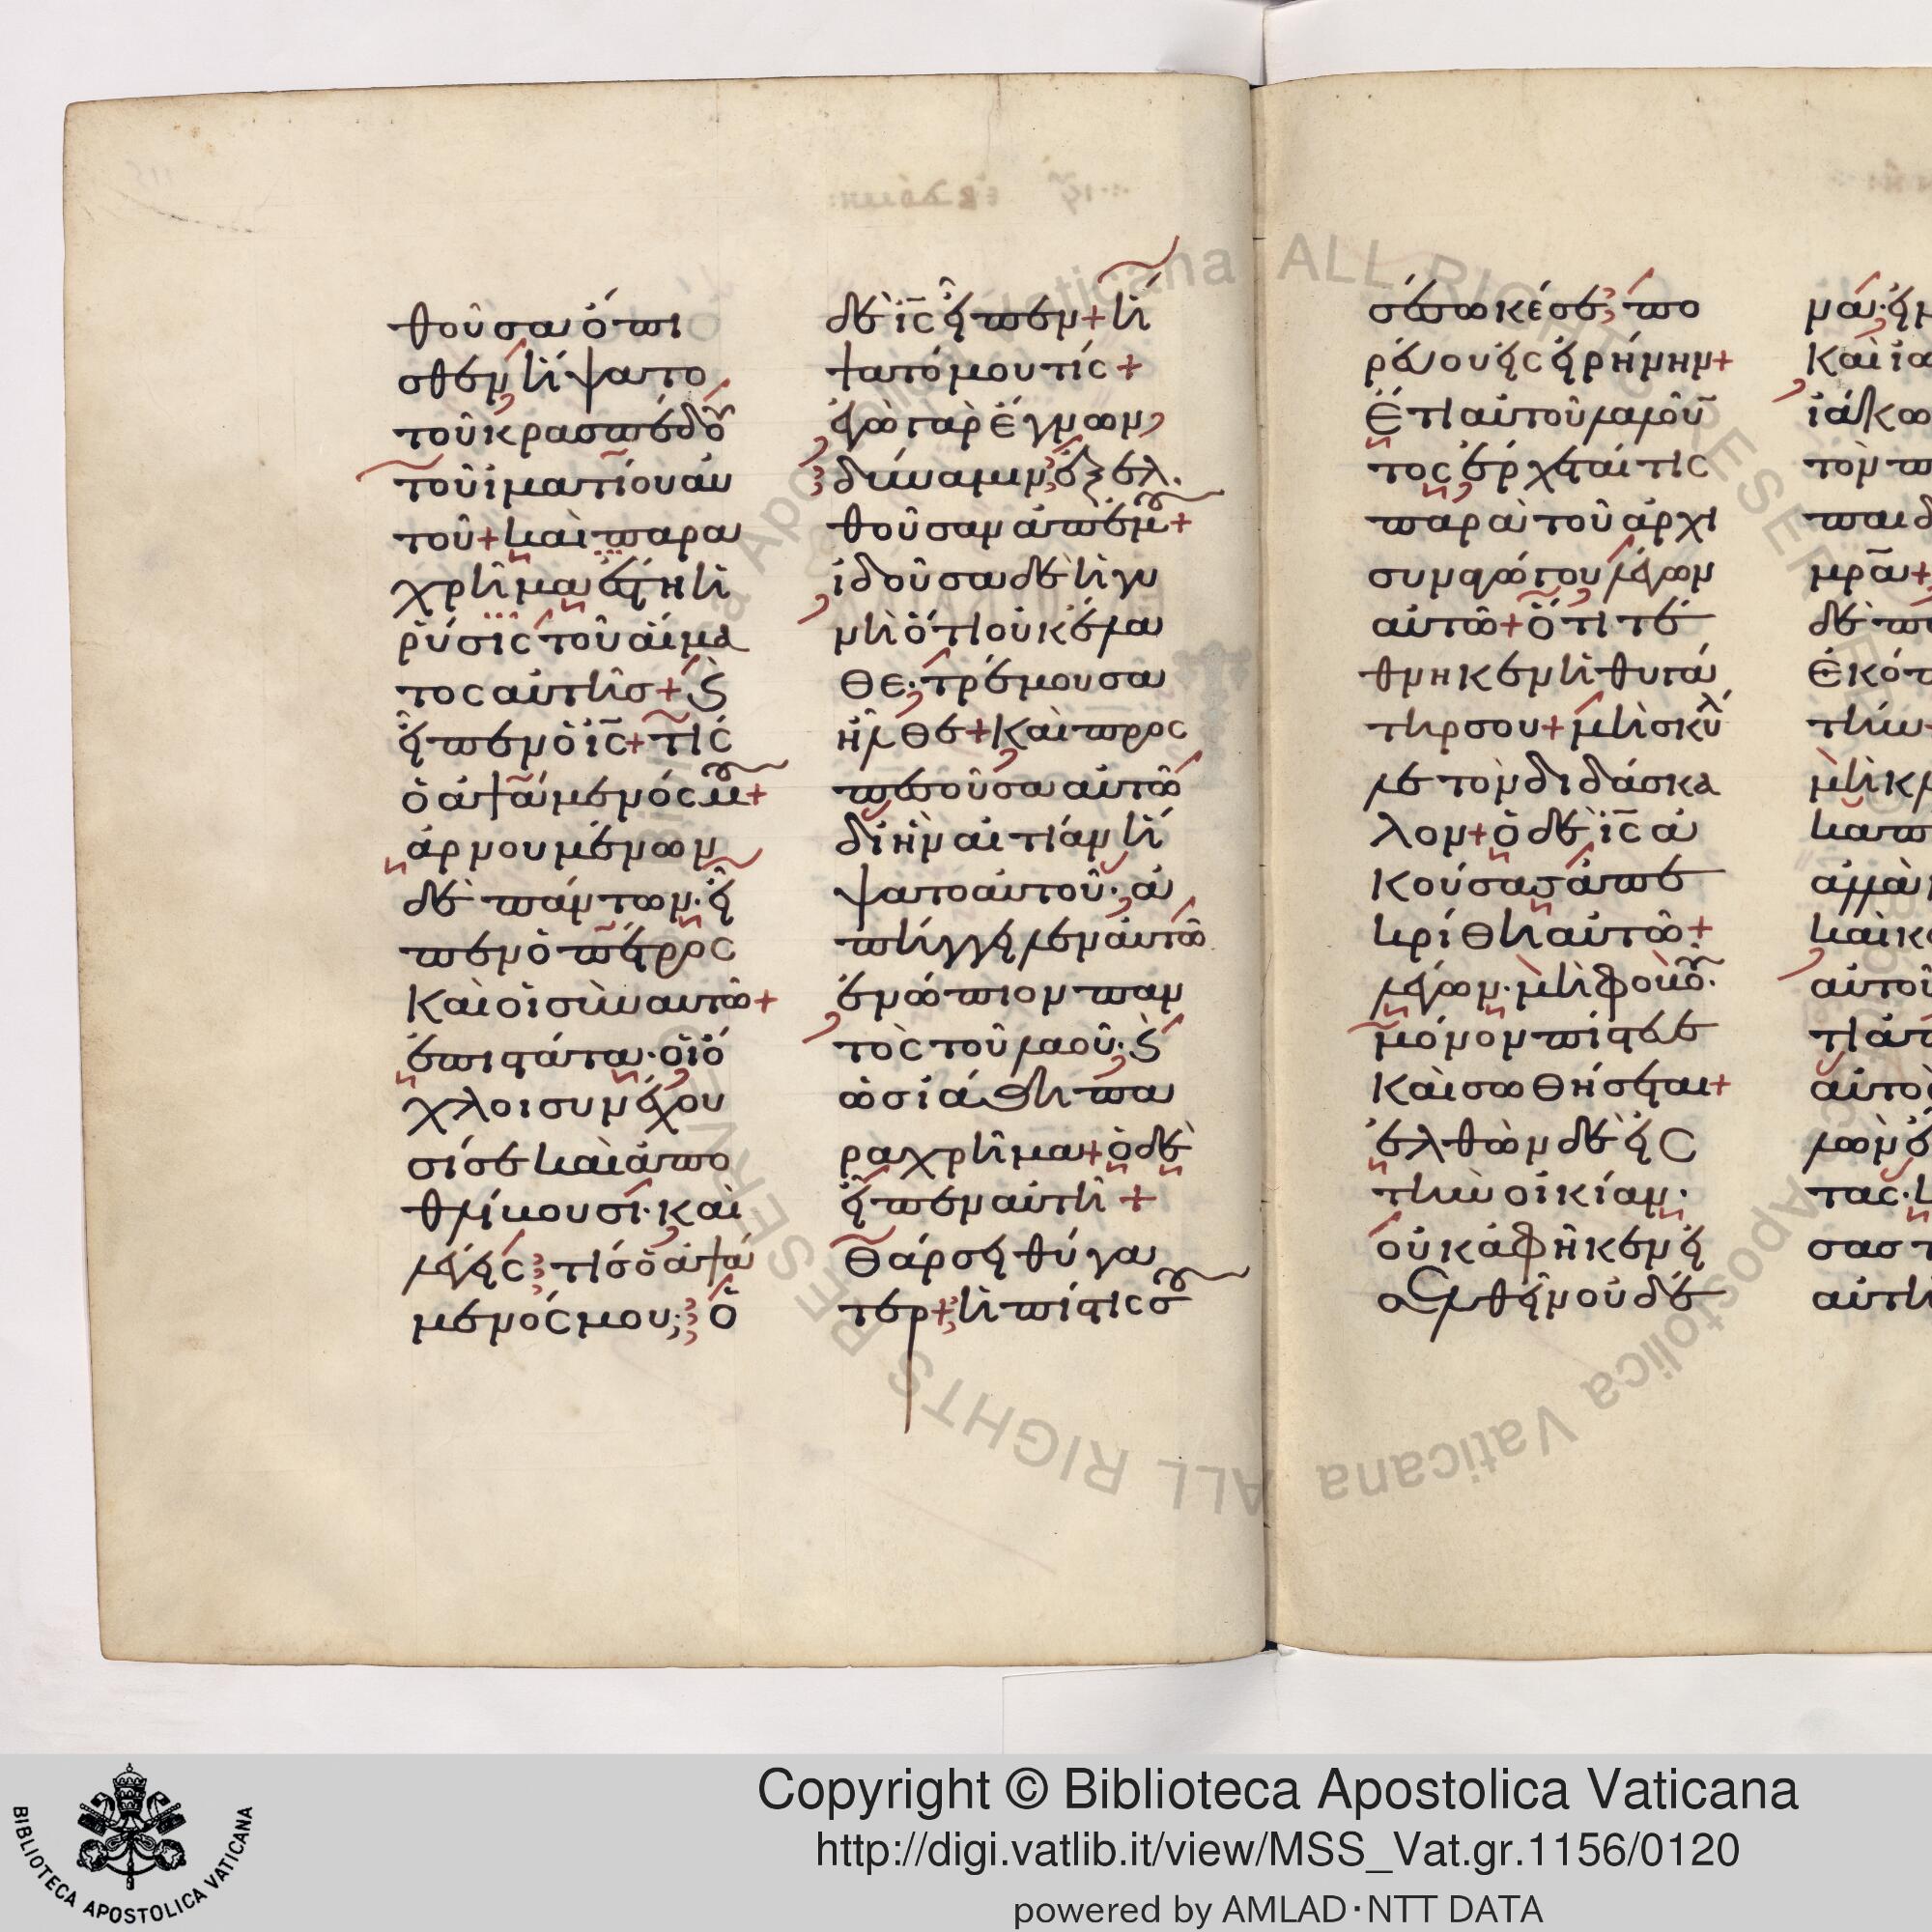 θοῦσα ὄπι
σθεν ἡ ψατο
τοῦ κρασπέδου
τοῦ ἱματίου αὐ
τοῦ + καὶ παρα
χρῆμα ἔστη ἡ
ρύσις τοῦ αἵμα
τος αὐτῆσ + Ϛ
εἶπεν ὁ ις + τίς
ὁ ἁψάμενός μου +
ἀρνουμένων
δὲ πάντων · εἶ
πεν ὁ πέτρος
καὶ οἱ σὺν αυτῶ +
ἐπιστάτα · οἱ ὄ
χλοι συνέχου
σί σε καὶ ἀπο
θλίβουσι · καὶ
λέγεις τίσ ὁ ἁψά
μενός μου; ὁ
δὲ ις εἶπεν + ἥ
ψατό μου τίς +
ἐγὼ γὰρ ἔγνων
δύναμιν ἐξελ
θοῦσαν ἀπ' ἐμοῦ +
ἰδοῦσα δὲ ἡ γυ
νὴ ὅτι οὐκ ἔλα
θε · τρέμουσα
ἦλθε + καὶ προς
πεσοῦσα αὐτῶ
δι ἣν αἰτίαν ἥ
ψατο αὐτοῦ · ἀ
πήγγειλεν αὐτῶ
ἐνώπιον παν
τὸς τοῦ λαοῦ · Ϛ
ὡς ἰάθη πα
ραχρῆμα + ὁ δὲ
εἶπεν αὐτῆ +
θάρσει θύγα
τερ + ἡ πίστις σου
σέσωκέ σε πο
ρεύου εἰς εἰρήνην +
Ἔτι αὐτοῦ λαλοῦν
τος ἔρχεταί τις
παρὰ τοῦ ἀρχι
συναγώγου λέγων
αὐτῶ + ὅτι τέ
θνηκεν ἡ θυγά
τηρ σου + μὴ σκύλ
λε τὸν διδάσκα
λον + ὁ δὲ ις ἀ
κούσας ἀπε
κρίθη αὐτῶ +
λέγων · μὴ φοβοῦ ·
μόνον πίστευε
καὶ σωθήσεται +
ἐλθὼν δὲ εἰς
τὴν οἰκίαν ·
οὐκ ἀφῆκεν εἰ
σελθεῖν οὐδέ
Copyright © Biblioteca Apostolica Vaticana
http://digi.vatlib.it/view/MSS_Vat.gr.1156/0120
powered by AMLAD·NTT DATA
BIBLIOTECA APOSTOLICA VATICANA